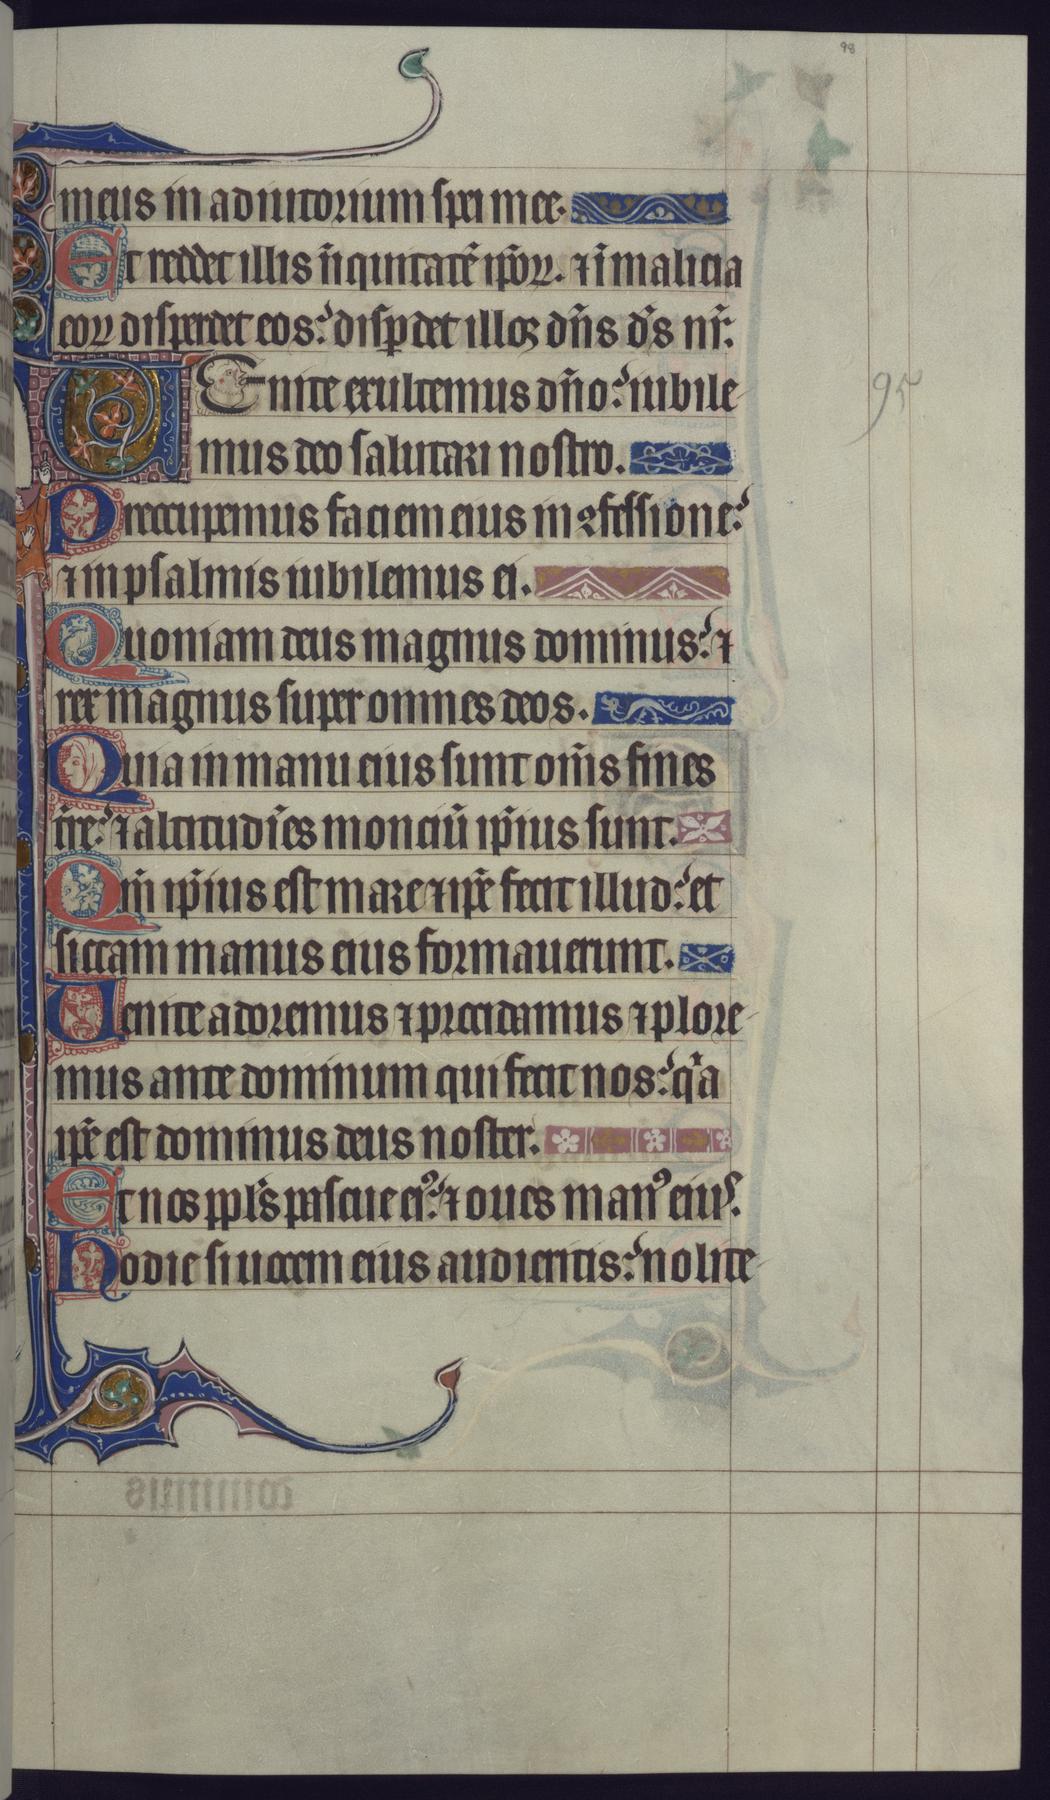 98
meus in adiutorium spei mee.
Et reddet illis īiquitatē ip̄oꝝ. ⁊ ī malicia
eoꝝ disperdet eos: disꝑdet illos dn̄s d̄s nr̄.
VEnite exultemus dn̄o: iubile
mus deo salutari nostro.
95
Preocupemus faciem eius in ꝯfessione:
⁊ in psalmis iubilemus ei.
Quoniam deus magnus dominus: ⁊
rex magnus super omnes deos.
Quia in manu eius sunt om̄s fines
t̄re: ⁊ altitudīes monciū ip̄ius sunt.
Qm̄ ip̄ius est mare ⁊ ip̄e fecit illud: et
siccam manus eius formauerunt.
Uenite adoremus ⁊ procidamus ⁊ plore
mus ante dominum qui fecit nos: qͥa
ip̄e est dominus deus noster.
Et nos ppl̄s pascue eiꝰ: ⁊ oues manꝰ eius.
Hodie si uocem eius audieritis: nolite